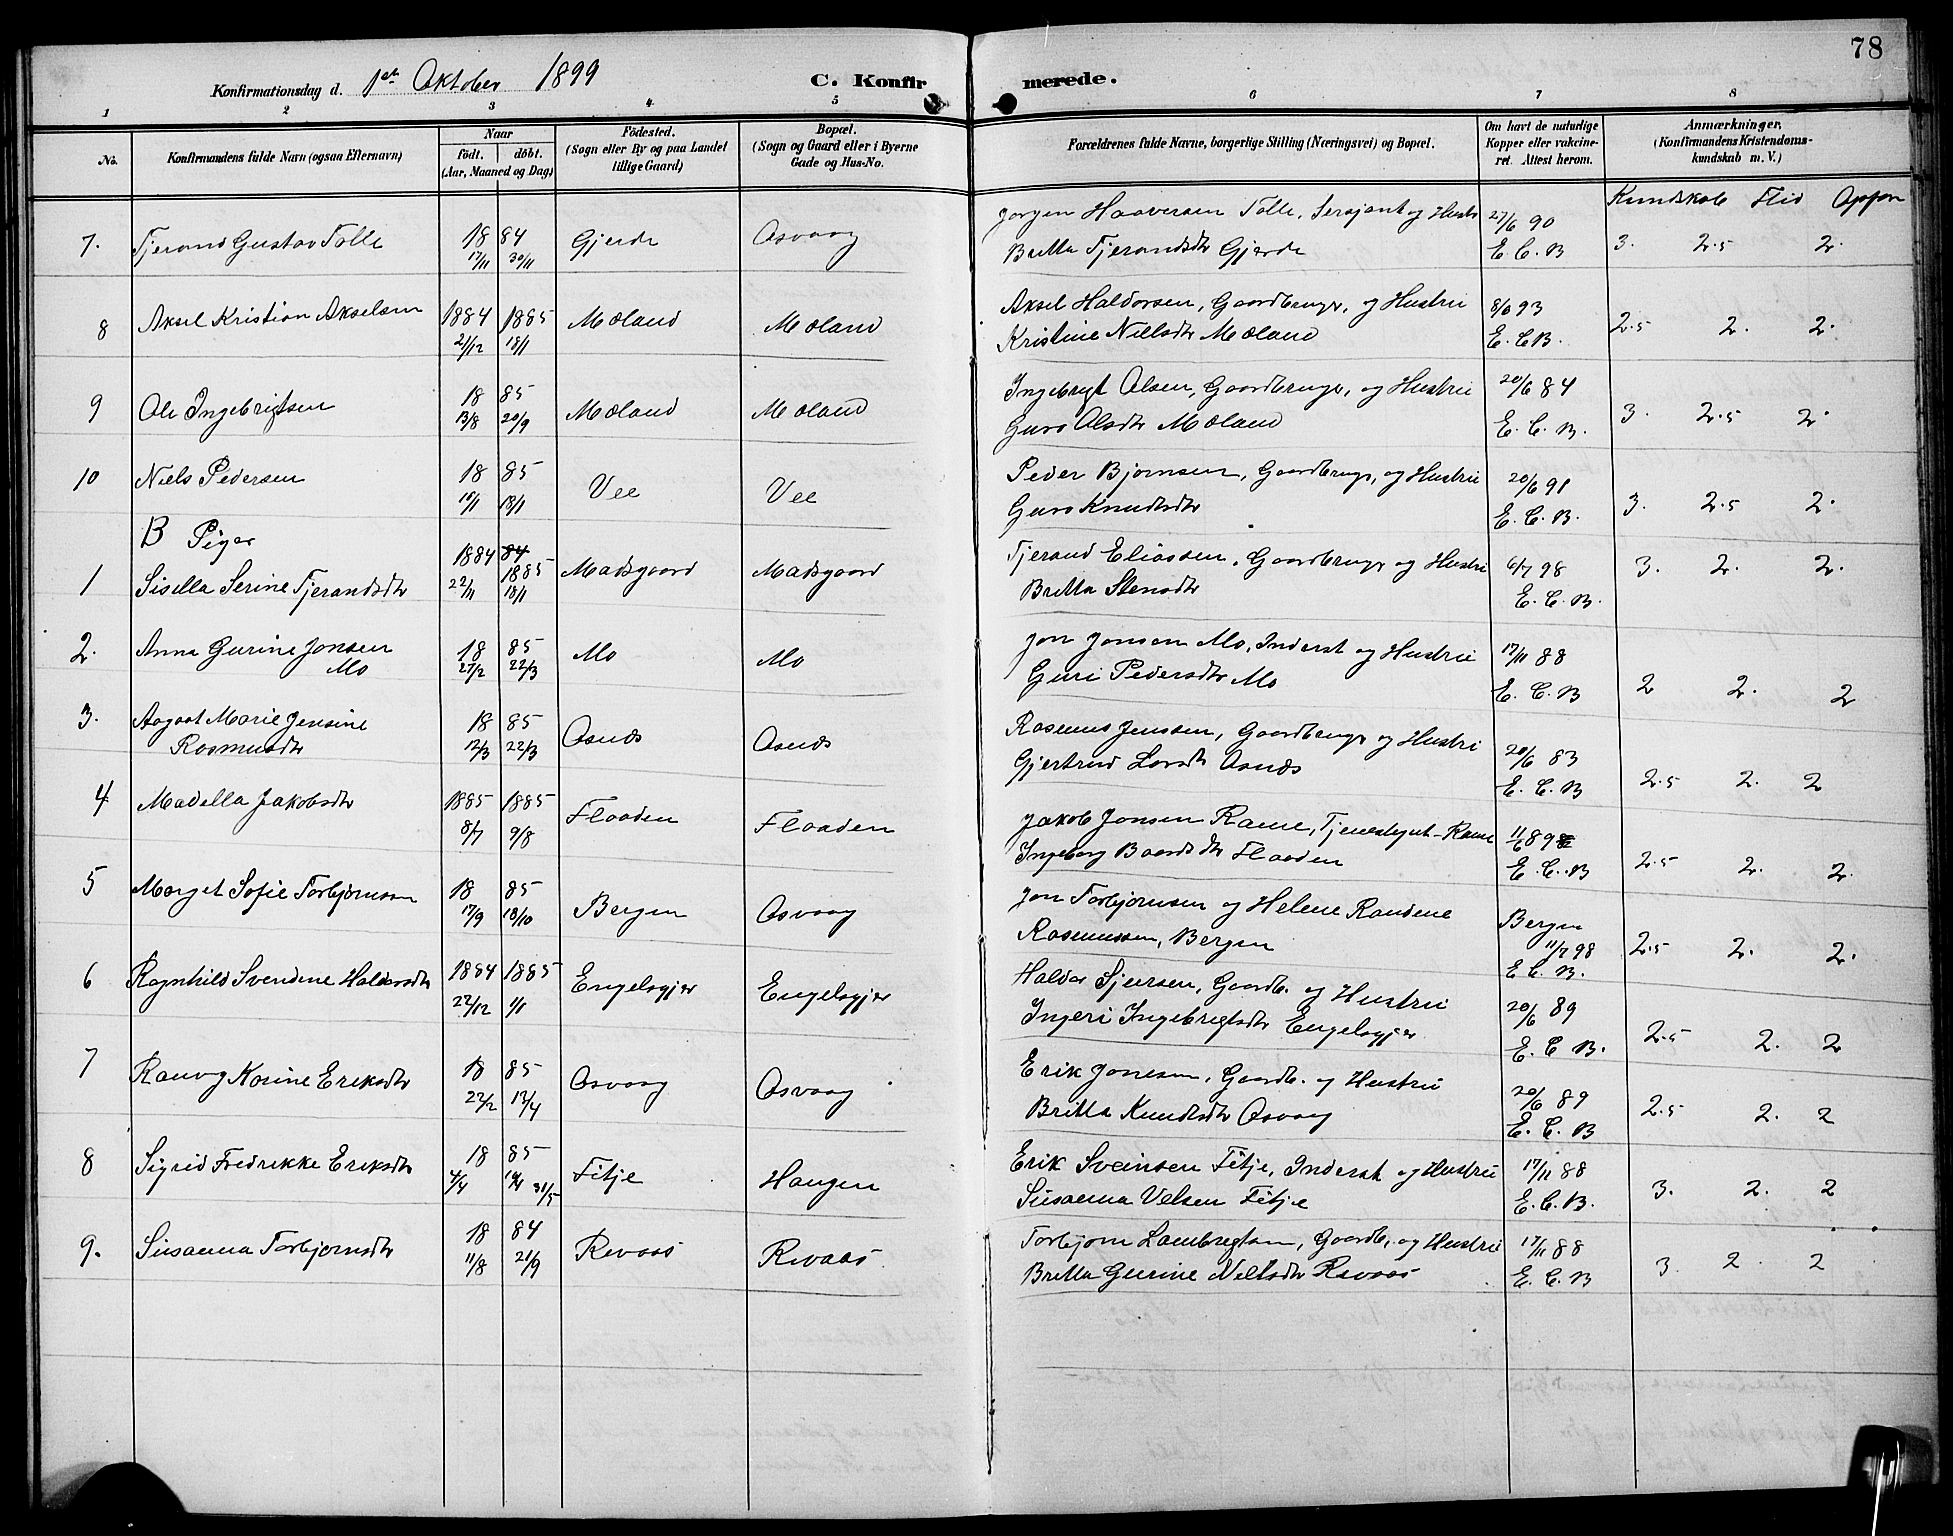 78
Konfirmationsdag d. 1st Oktober 1899 C. Konfirmerede.
1 2 3 4 5 6 7 8
No. Konfirmandens fulde Navn (ogsaa Efternavn) Naar födt. döbt. (Aar, Maaned og Dag) Födested. (Sogn eller By og paa Landet tillige Gaard) Bopæl. (Sogn og Gaard eller i Byerne Gade og Hus-No. Forældrenes fulde Navne, borgerlige Stilling (Næringsvei) og Bopæl. Om havt de naturlige Kopper eller vakcineret. Attest herom. Anmærkninger. (Konfirmandens Kristendomskundskab m. V.)
Kundskab Flid Oppør
7. Tjerand Gustav Tolle 18 84 Gjerde Aasvaag Jørgen Haaversen Tolle, Sersjant og Hustr 27/6 90
17/11 30/11 Britta Tjerandsdtr Gjerde E. C. B 3. 2.5 2.
8 Aksel Kristian Akselsen 1884 1885 Mæland Mæland Aksel Haldorsen, Gaardbruger, og Hustru 8/6 93
21/12 18/1 Kristine Nielsdtr Mæland E. C B. 2.5 2. 2.
9 Ole Ingebrigtsen 18 85 Mæland Mæland Ingebrigt Olsen, Gaardbruger, og Hustru 20/6 84
13/8 20/9 Guro Olsdtr Mæland E. C. B. 3. 2.5 2.
10 Niels Pedersen 18 85 Vee Vee Peder Bjørnsen, Gaardbruger, og Hustru 20/6 91
10/1 18/1 Guro Knudsdtr E. C. B. 3. 2.5 2.
B Piger
1 Sisella Serine Tjerandsdtr 1884 84 1885 Madsgaard Madsgaard Tjerand Eliassen, Gaardbruger og Hustru 6/7 98 3. 2. 2.
22/11 18/1 Britta Stensdtr E. C. B.
2. Anna Gurine Jonsen 18 85 Mo Mo Jon Jonsen Mo, Inderst og Hustru 17/11 88
Mo 27/2 22/3 Guri Pedersdtr Mo E. C. B 2 2. 2
3. Aagaat Marie Jensine 18 85 Rasmus Jenssen, Gaardbruger og Hustru 20/6 83
Rasmusdtr 12/3 22/3 Gjertrud Larsdtr E. C. B 2.5 2. 2
4 Madella Jakobsdtr 1885 1885 Flaaden Flaaden Jakob Jonsen Rame, Tjenestegut-Rame 11/6 89
8/7 9/8 Ingeborg Baardsdtr Flaaden E. C. B 2.5 2. 2.
5 Marget Sofie Torbjørnsen 18 85 Bergen Aasvaag Jon Torbjørnsen og Helene Randene Bergen
17/9 18/10 Rasmussen, Bergen 11/7 98 2.5 2. 2.
E. C. B.
6 Ragnhild Svendine Haldorsdtr 1884 1885 Engelsgjer Engelsgjer Haldor Sjursen, Gaardb. og Hustru 20/6 89
22/12 1/1 Ingeri Ingebrigtsdtr Engelsgjer E. C B. 2.5 2. 2
7 Ranvog Karine Eriksdtr 18 85 Aasvaag Aasvaag Erik Jonesen, Gaardb. og Hustru 20/6 89
22/2 12/4 Britta Knudsdtr Aasvaag E. C. B 2.5 2. 2
8 Sigrid Fredrikke Eriksdtr 18 85 Fitje Haugen Erik Sveinsen Fitje, Inderst og Hustru 17/11 88
4/4 31/5 Susanna Velsen Fitje E. C. B. 3. 2. 2
9. Susanna Torbjørnsdtr 18 84 Revaas Revaas Torbjørn Lambregtsen, Gaardb. og Hustru 17/11 88
11/8 21/9 Britta Gurine Nielsdtr Revaas E. C. B 3. 2. 2